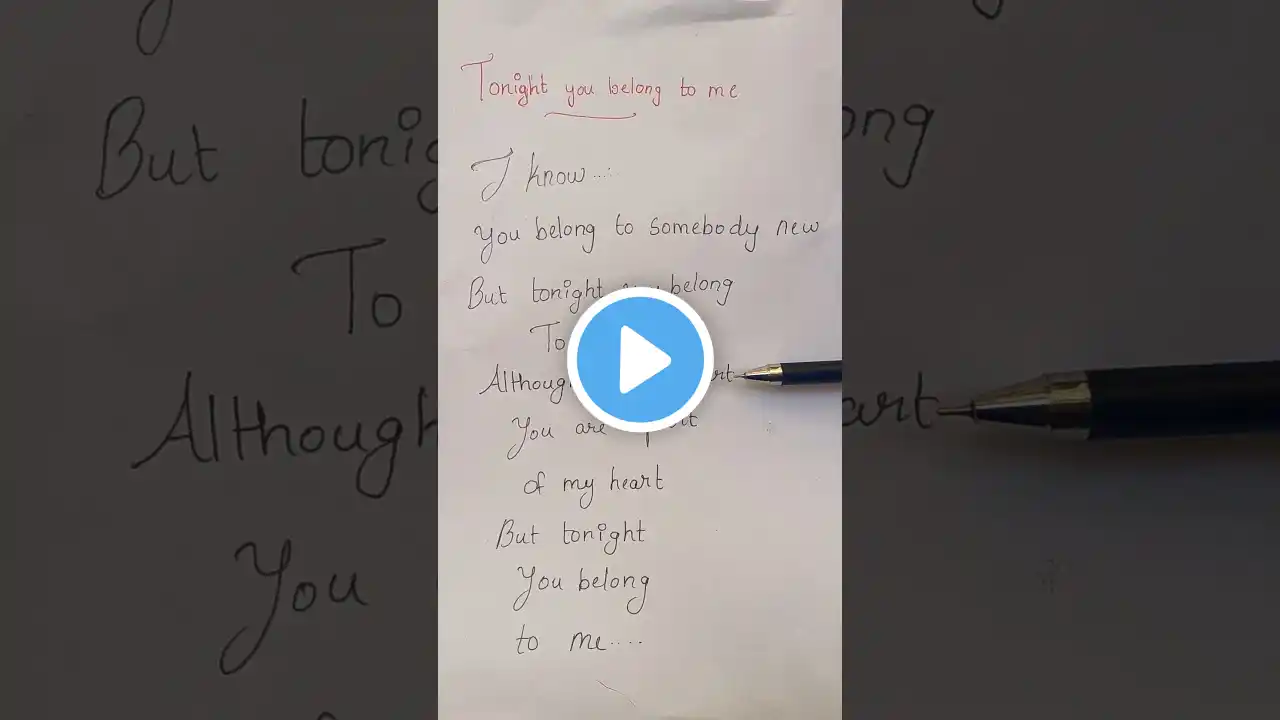 Tonight you belong to me
I know.....
You belong to somebody new
But tonight belong
To
Although
You are
of my heart
But tonight
You belong
to me....